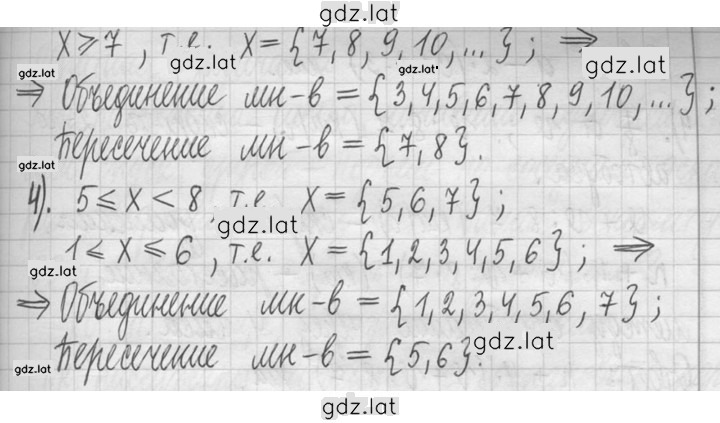 gdz.lat
x ⩾ 7 , т.е. x = {7, 8, 9, 10, ...} ; ⇒
gdz.lat
gdz.lat
gdz.lat
gdz.lat
⇒ Объединение мн-в = {3, 4, 5, 6, 7, 8, 9, 10, ...} ;
Пересечение мн-в = {7, 8}.
gdz.lat
4). 5 ⩽ x < 8 , т.е. x = {5, 6, 7} ;
gdz.lat
1 ⩽ x ⩽ 6 , т.е. x = {1, 2, 3, 4, 5, 6} ; ⇒
gdz.lat
⇒ Объединение мн-в = {1, 2, 3, 4, 5, 6, 7} ;
Пересечение мн-в = {5, 6}.
gdz.lat
gdz.lat
gdz.lat